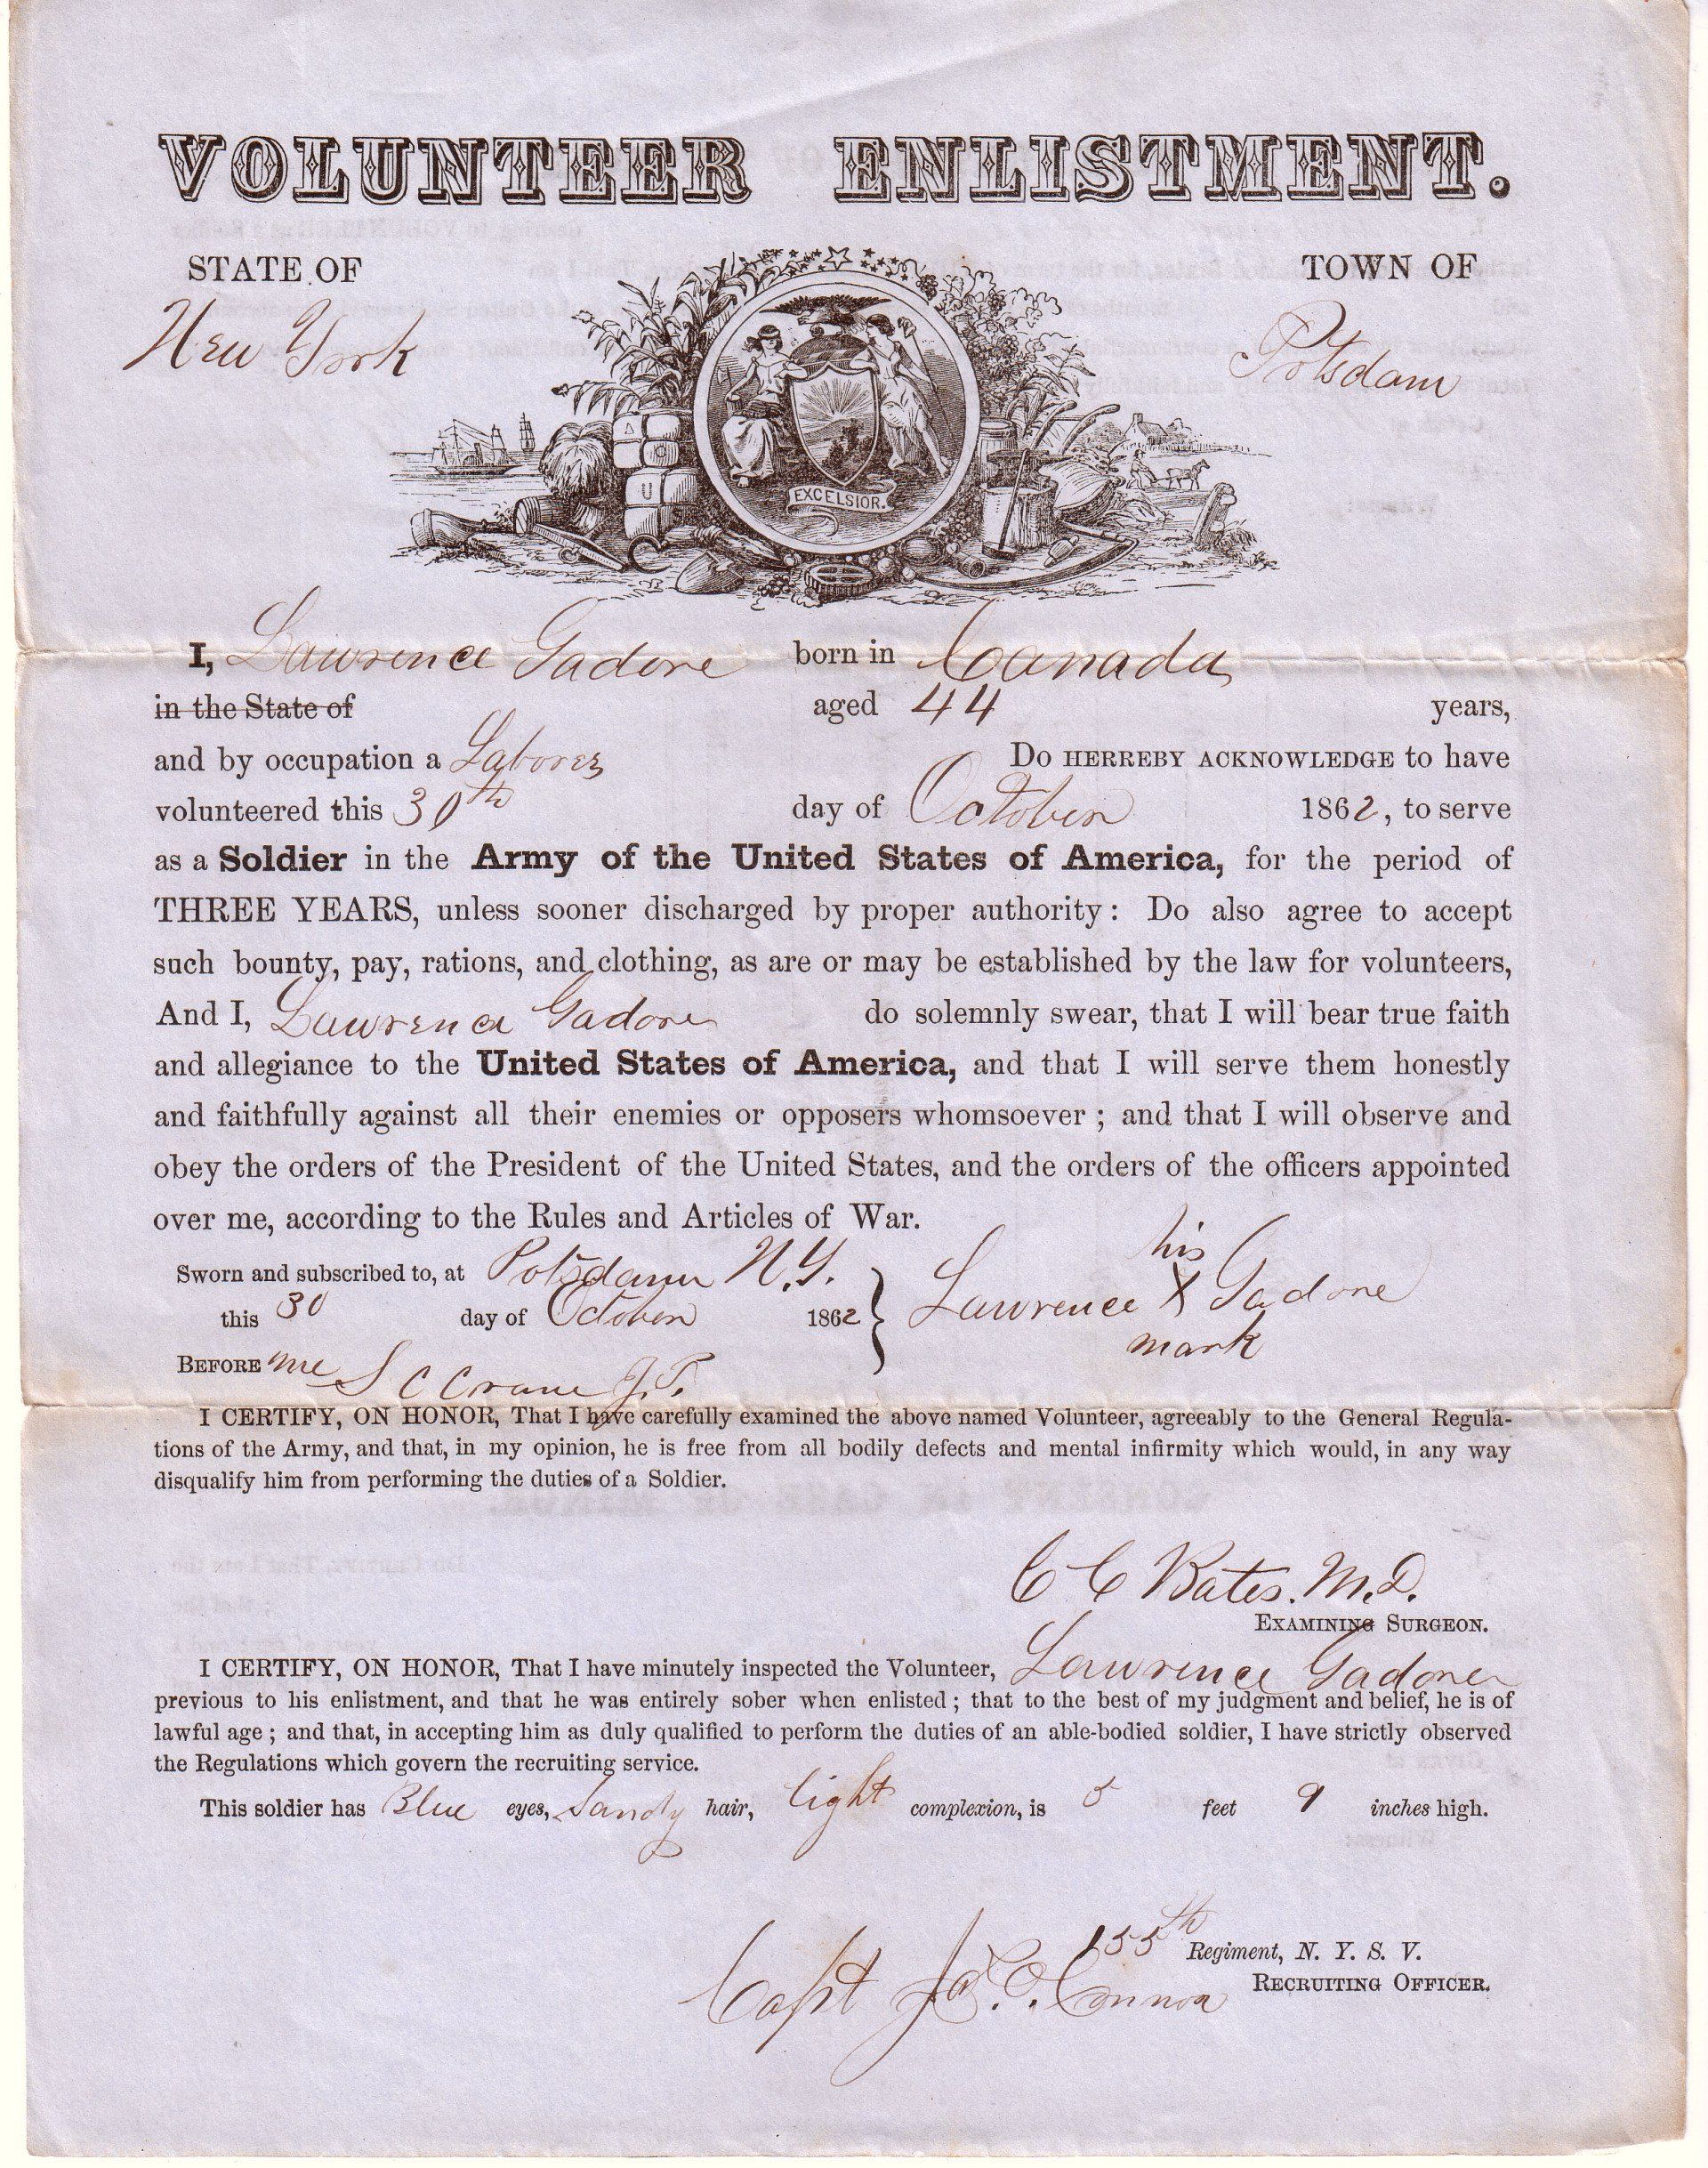 VOLUNTEER ENLISTMENT.
STATE OF
TOWN OF
New York
Potsdam
EXCELSIOR.
I, Lawrence Gadore born in Canada
in the State of aged 44 years,
and by occupation a Laborer Do HERREBY ACKNOWLEDGE to have
volunteered this 30th day of October 1862, to serve
as a Soldier in the Army of the United States of America, for the period of
THREE YEARS, unless sooner discharged by proper authority: Do also agree to accept
such bounty, pay, rations, and clothing, as are or may be established by the law for volunteers,
And I, Lawrence Gadore do solemnly swear, that I will bear true faith
and allegiance to the United States of America, and that I will serve them honestly
and faithfully against all their enemies or opposers whomsoever; and that I will observe and
obey the orders of the President of the United States, and the orders of the officers appointed
over me, according to the Rules and Articles of War.
Sworn and subscribed to, at Potsdam N.Y.
this 30 day of October 1862
his
Lawrence X Gadore
mark
BEFORE me S C Crane J.P.
I CERTIFY, ON HONOR, That I have carefully examined the above named Volunteer, agreeably to the General Regula-
tions of the Army, and that, in my opinion, he is free from all bodily defects and mental infirmity which would, in any way
disqualify him from performing the duties of a Soldier.
C C Bates. M.D.
EXAMINING SURGEON.
I CERTIFY, ON HONOR, That I have minutely inspected the Volunteer, Lawrence Gadore
previous to his enlistment, and that he was entirely sober when enlisted; that to the best of my judgment and belief, he is of
lawful age; and that, in accepting him as duly qualified to perform the duties of an able-bodied soldier, I have strictly observed
the Regulations which govern the recruiting service.
This soldier has Blue eyes, Sandy hair, light complexion, is 5 feet 9 inches high.
155th Regiment, N. Y. S. V.
Capt
RECRUITING OFFICER.